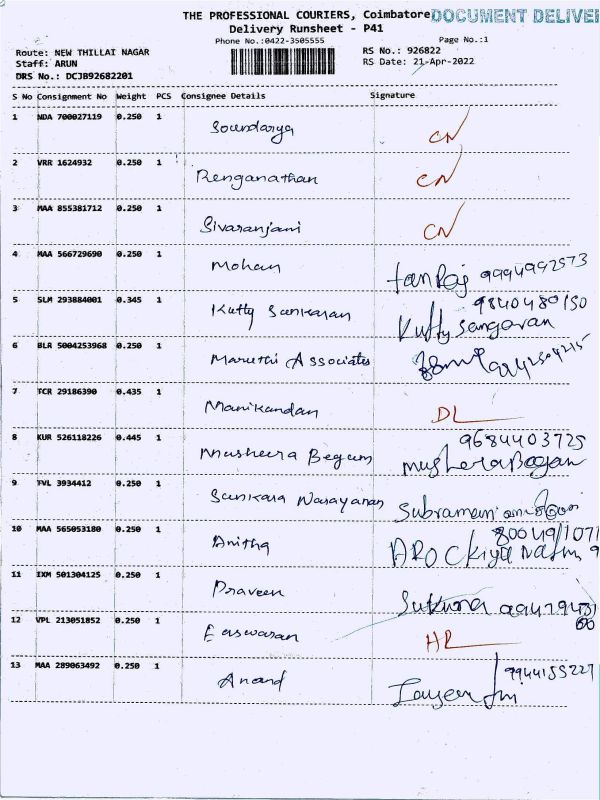 THE PROFESSIONAL COURIERS, Coimbatore DOCUMENT DELIVE
Delivery Runsheet - P41
Phone No.:0422-3505555 Page No.:1
Route: NEW THILLAI NAGAR RS No.: 926822
Staff: ARUN RS Date: 21-Apr-2022
DRS No.: DCJB92682201
S No Consignment No Weight PCS Consignee Details Signature
1 NDA 700027119 0.250 1 Soundarya CN
2 VRR 1624932 0.250 1 Renganathan CN
3 MAA 855381712 0.250 1 Sivaranjani CN
4 MAA 566729690 0.250 1 Mohan
5 SLM 293884001 0.345 1 Kutty Sankaran 9840480150
Kutty Sangaran
6 BLR 5004253968 0.250 1 Maruthi Associates
7 TCR 29186390 0.435 1 Manikandan DL
8 KUR 526118226 0.445 1 Musheera Begum 9684403725
9 TVL 3934412 0.250 1 Sankara Narayanan
10 MAA 565053180 0.250 1 Anitha
11 IXM 501304125 0.250 1 Praveen
12 VPL 213051852 0.250 1 Easwaran
13 MAA 289063492 0.250 1 Anand 9944155227